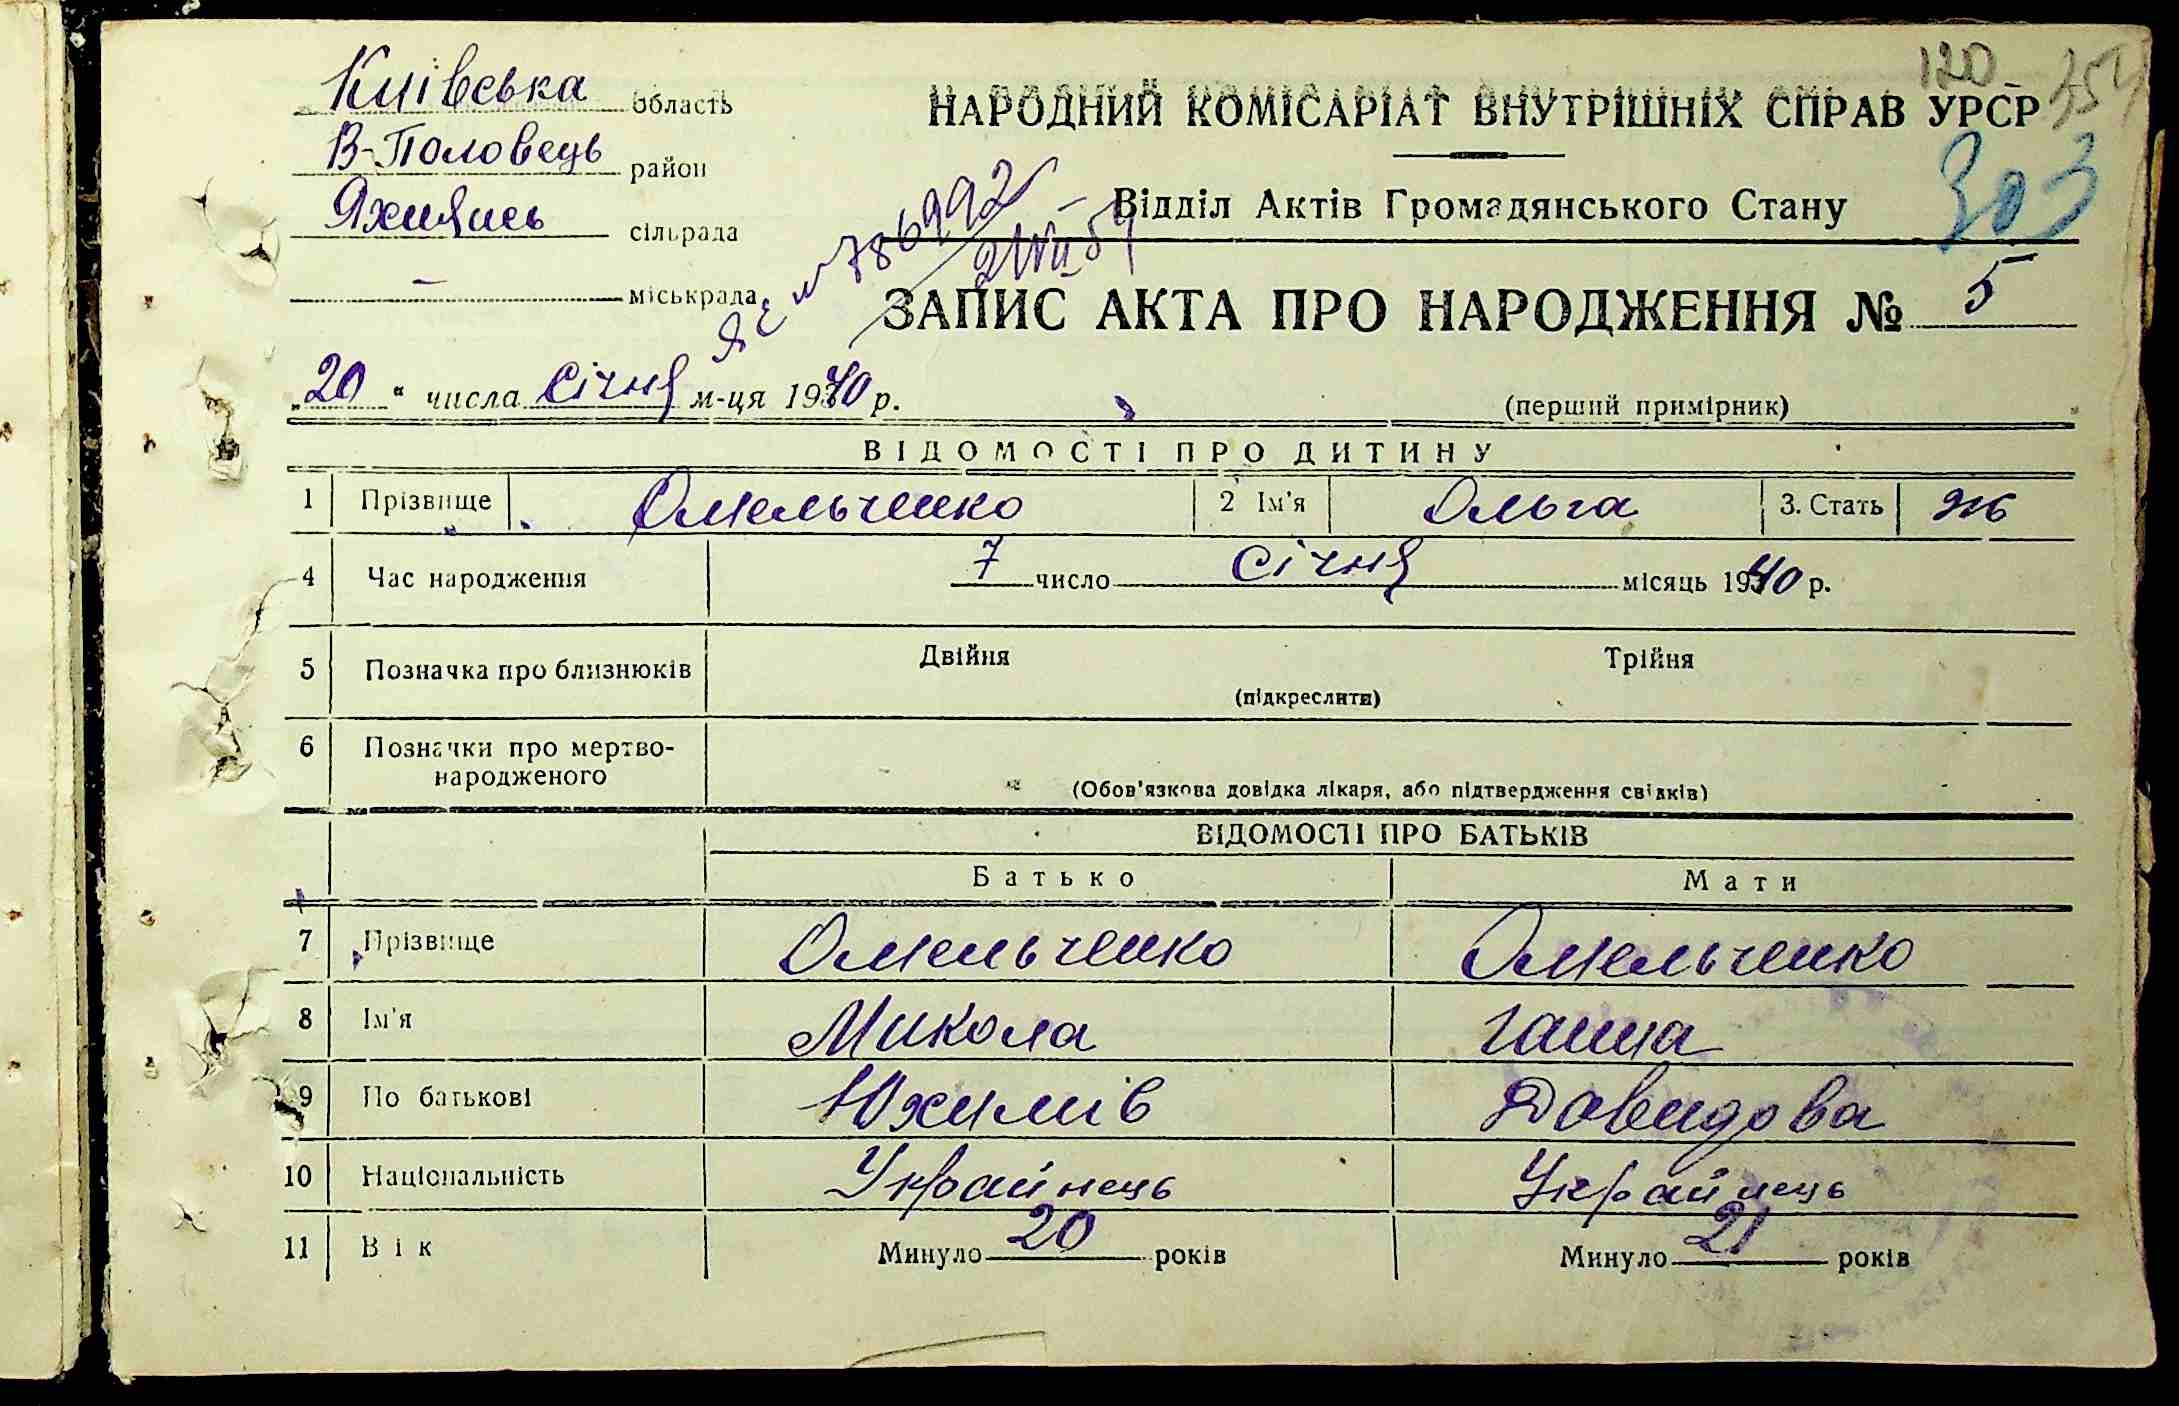 120 354
Київська область
НАРОДНИЙ КОМІСАРІАТ ВНУТРІШНІХ СПРАВ УРСР
В-Половець район
303
Яхнянсь сільрада
Відділ Актів Громадянського Стану
міськрада
786992
ЗАПИС АКТА ПРО НАРОДЖЕННЯ № 5
„20“ числа Січня м-ця 1940 р.
(перший примірник)
ВІДОМОСТІ ПРО ДИТИНУ
1 Прізвище Омельченко 2 Ім'я Ольга 3. Стать ж
4 Час народження 7 число Січня місяць 1940 р.
5 Позначка про близнюків Двійня Трійня
(підкреслити)
6 Позначки про мертво-
народженого
(Обов'язкова довідка лікаря, або підтвердження свідків)
ВІДОМОСТІ ПРО БАТЬКІВ
Батько Мати
7 Прізвище Омельченко Омельченко
8 Ім'я Микола Ганна
9 По батькові Юхимів Давидова
10 Національність Украйнець Украйнець
11 Вік Минуло 20 років Минуло 21 років